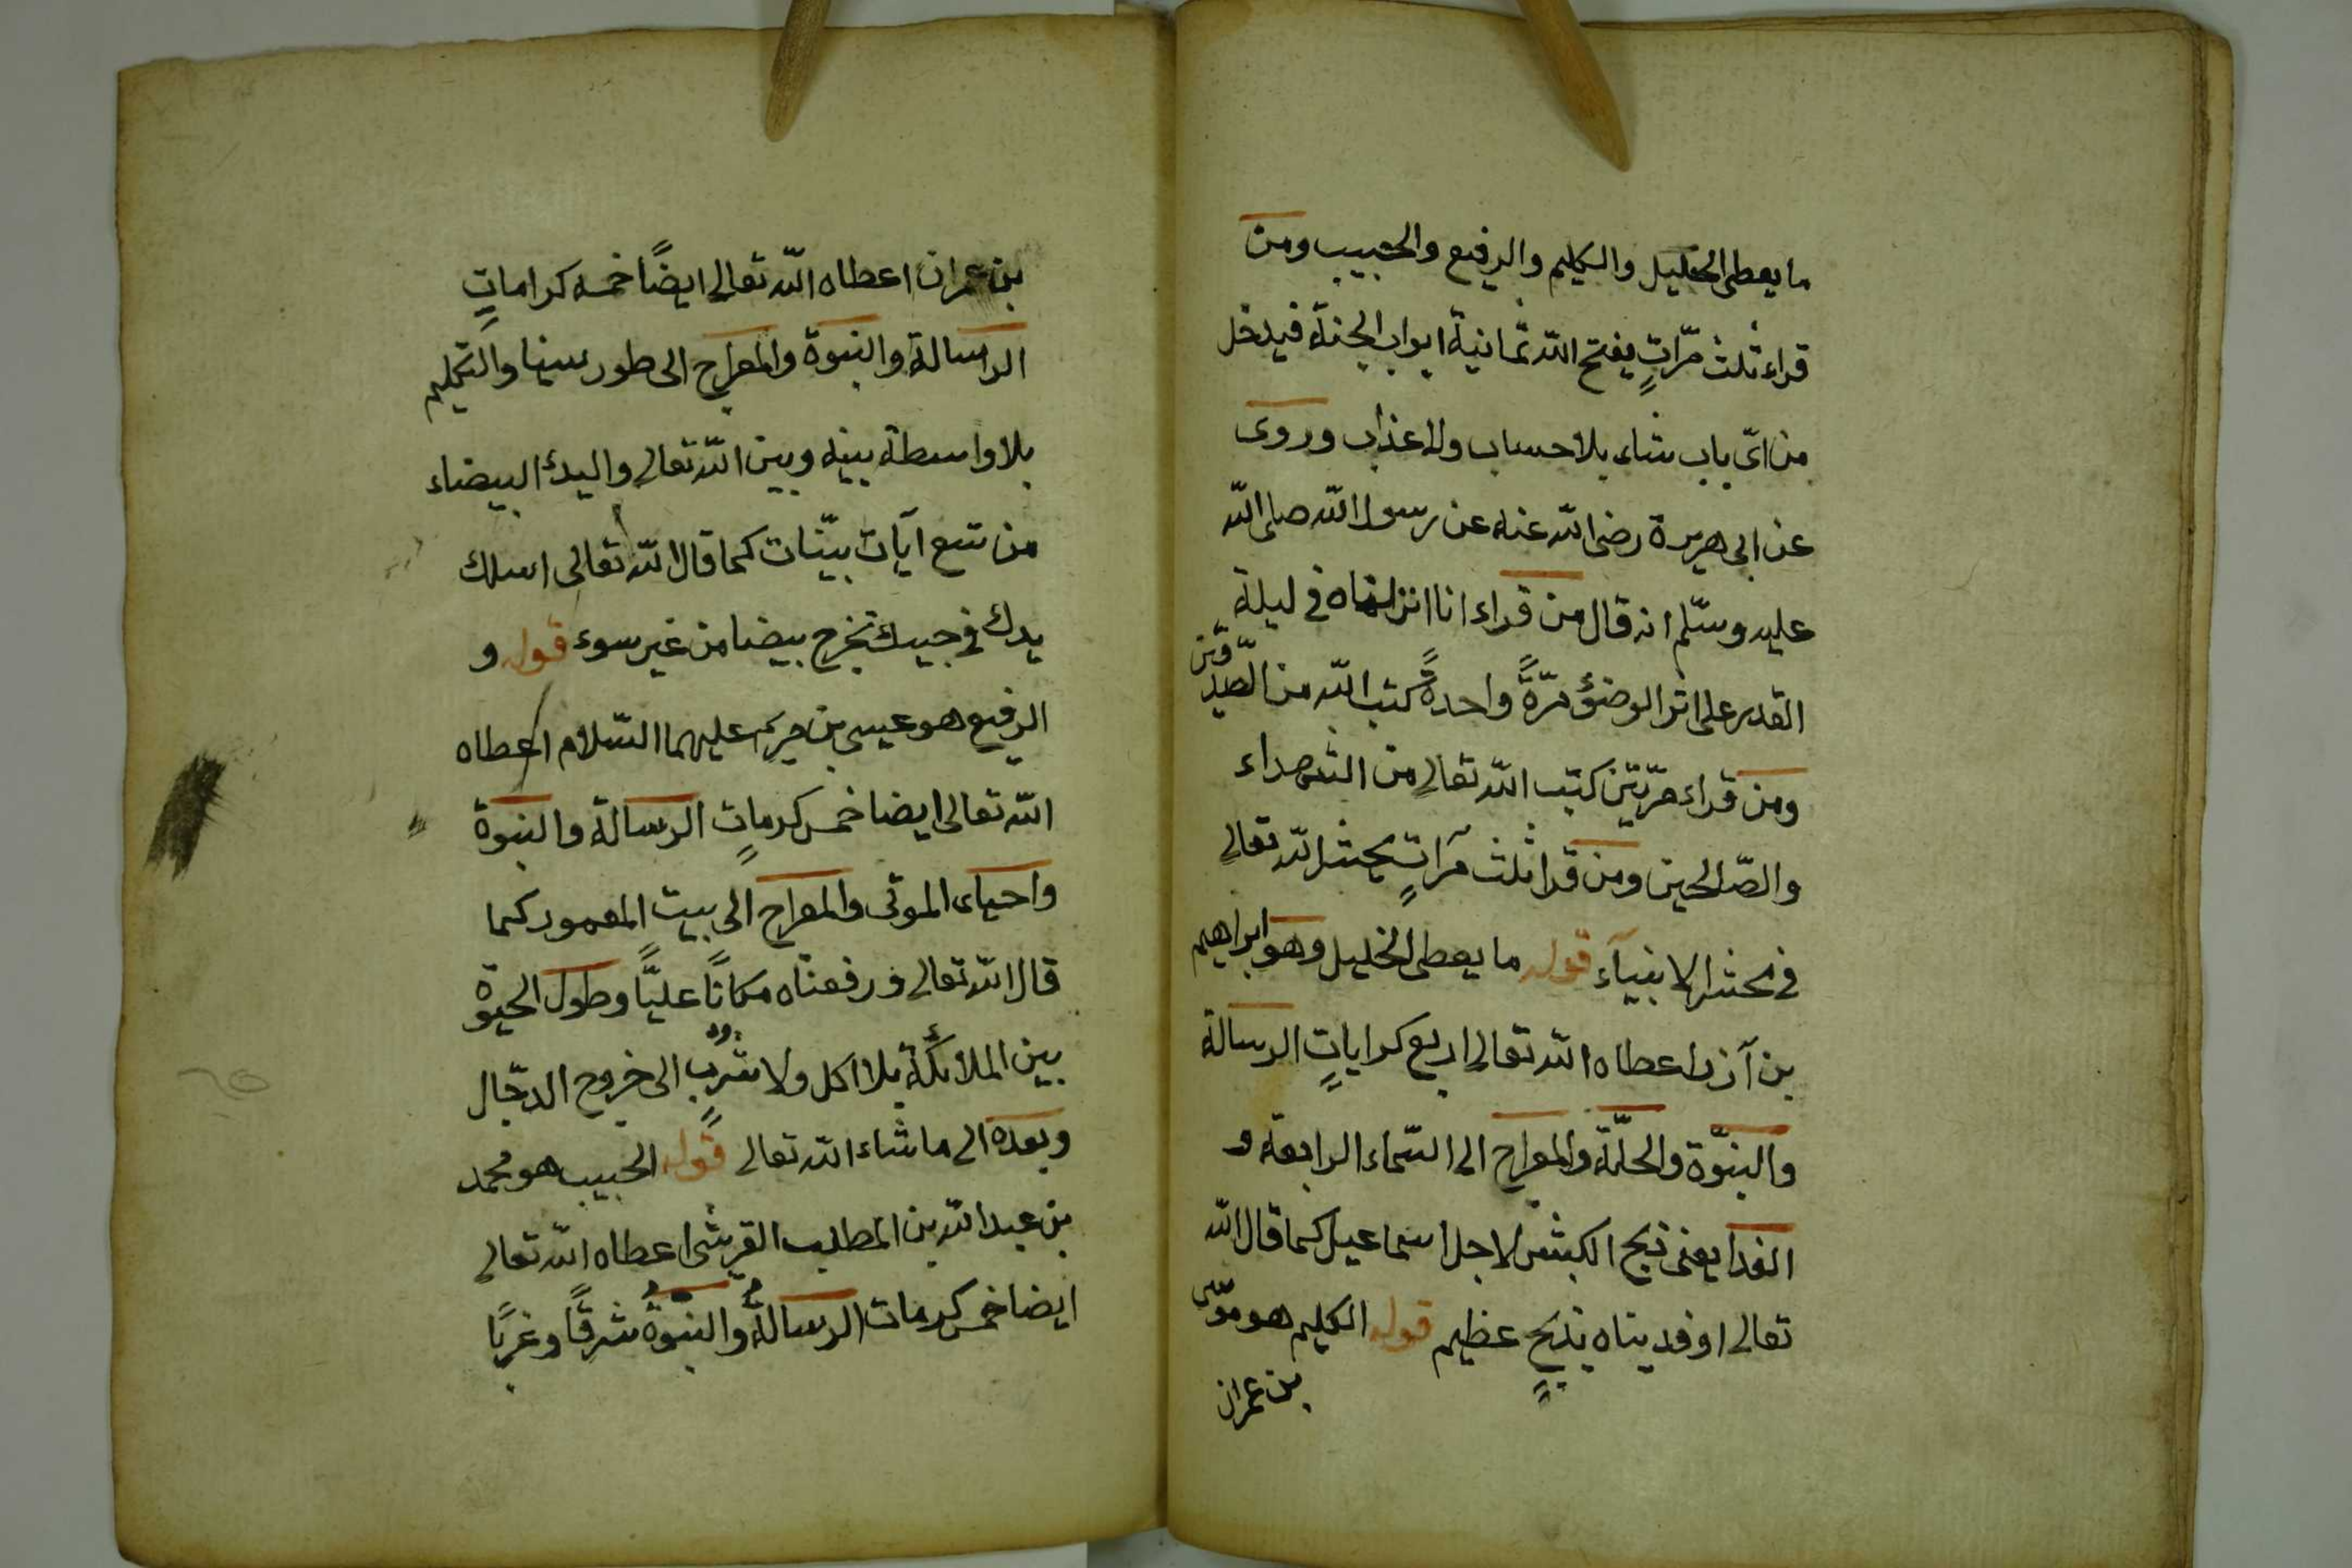 ما يعطى الخليل والكليم والرفيع والحبيب ومن
قراء ثلث مرّاتٍ يفتح الله ثمانية ابواب الجنة فيدخل
من اىّ باب شاء بلا حساب ولا عذاب وروى
عن ابى هريرة رضى الله عنه عن رسول الله صلى الله
عليه وسلّم انه قال من قراء انا انزلناه فى ليلة
القدر على اثر الوضؤ مرّةً واحدةً كتب الله من الصّدّوقين
ومن قراء مرّتين كتب الله تعالى من الشهداء
والصّالحين ومن قرا ثلث مرّاتٍ يحشر الله تعالى
فى محشر الانبيآء قوله ما يعطى الخليل وهو ابراهيم
بن آزر اعطاه الله تعالى اربع كراياتٍ الرسالة
والنبوّة والحلّة والمعراج الى السّماء الرابعة و
الفدا يعنى ذبح الكبش لاجل اسماعيل كما قال الله
تعالى وفديناه بذبحٍ عظيم قوله الكليم هو موسى
بن عمران
بن عمران اعطاه الله تعالى ايضًا خمسه كراماتٍ
الرسالة والنبوة والمعراج الى طور سينا والتكليم
بلا واسطة بينه وبين الله تعالى واليدك البيضاء
من تسع آيات بيّنات كما قال الله تعالى اسلك
يدك فى جيبك تخرج بيضا من غير سوء قوله و
الرفيع هو عيسى بن مريم عليهما السّلام اعطاه
الله تعالى ايضا خمس كرماتٍ الرسالة والنبوة
واحياء الموتى والمعراج الى بيت المعمور كما
قال الله تعالى ورفعناه مكانًا عليًّا وطول الحيوة
بين الملائكة بلا اكل ولا شربٍ الى خروج الدجّال
وبعده الى ما شاء الله تعالى قوله الحبيب هو محمد
بن عبد الله بن المطلب القريشى اعطاه الله تعالى
ايضا خمس كرمات الرسالة والنبوة شرقًا وغربًا